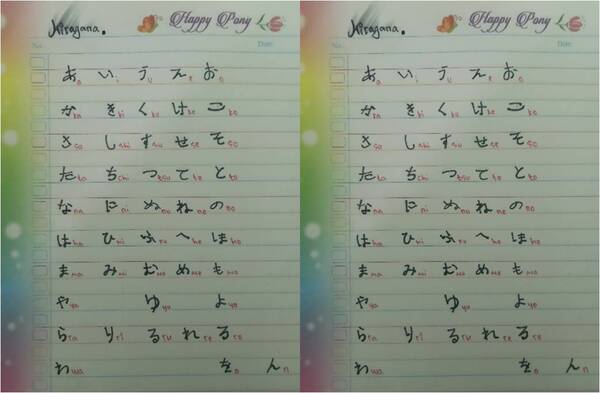 Hiragana. Happy Pony
No. Date
あa いi うu えe おo
かka きki くku けke こko
さsa しshi すsu せse そso
たta ちchi つtsu てte とto
なna にni ぬnu ねne のno
はha ひhi ふfu へhe ほho
まma みmi むmu めme もmo
やya ゆyu よyo
らra りri るru れre るro
わwa をo んn
Hiragana. Happy Pony
No. Date
あa いi うu えe おo
かka きki くku けke こko
さsa しshi すsu せse そso
たta ちchi つtsu てte とto
なna にni ぬnu ねne のno
はha ひhi ふfu へhe ほho
まma みmi むmu めme もmo
やya ゆyu よyo
らra りri るru れre るro
わwa をo んn